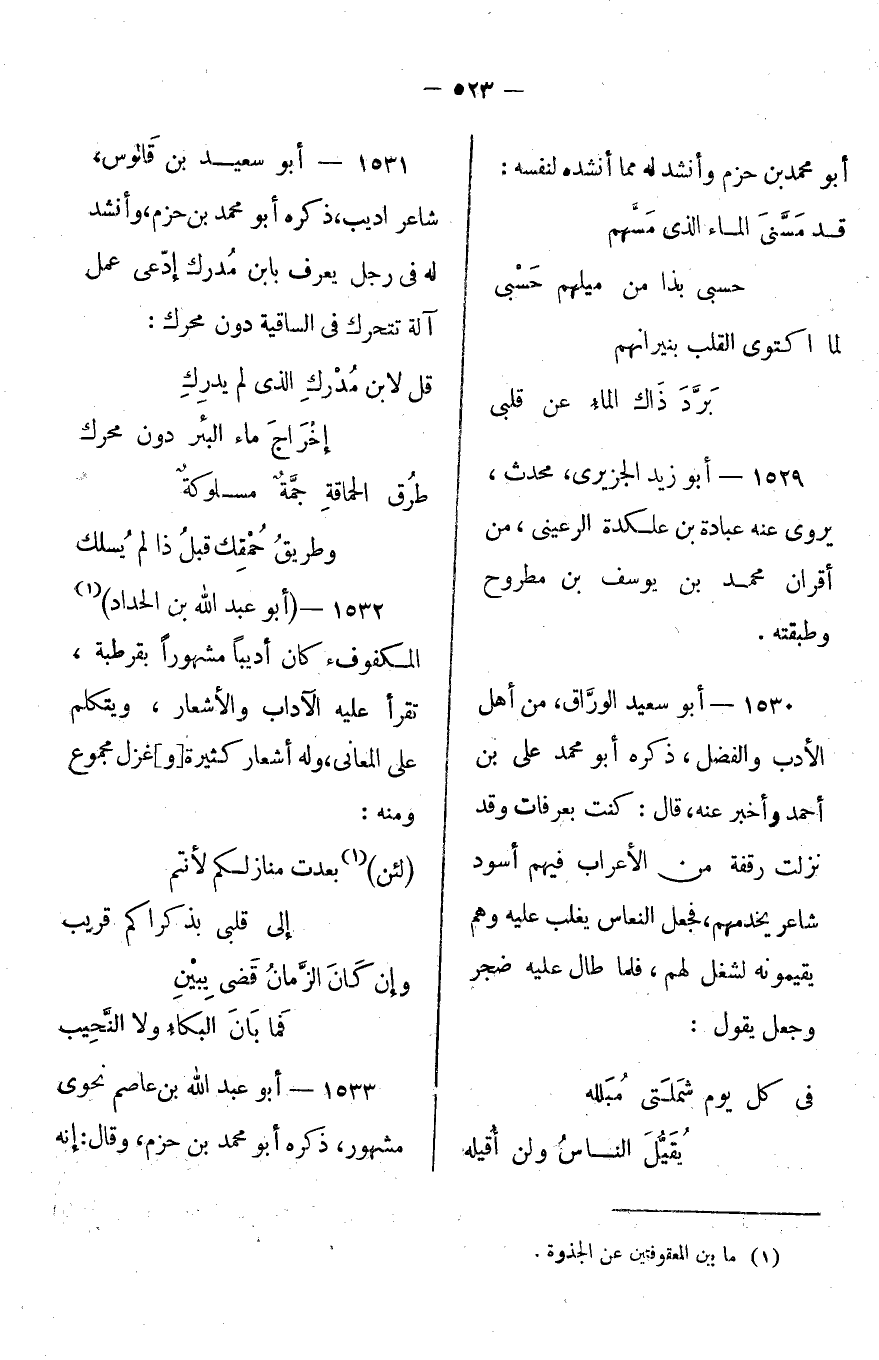 — ٥٢٣ —
أبو محمد بن حزم وأنشد له مما أنشده لنفسه :
قـد مَسَّنىَ المـاء الذى مَسَّهم
حسبى بذا من ميلهم حَسْبى
لما اكتوى القلب بنيرانهم
بَرَّدَ ذَاك الماءِ عن قلبى
١٥٢٩ — أبو زيد الجزيرى، محدث ،
يروى عنه عبادة بن علـكدة الرعينى ، من
أقران محمـد بن يوسف بن مطروح
وطبقته .
١٥٣٠ — أبو سعيد الورَّاق، من أهل
الأدب والفضل ، ذكره أبو محمد على بن
أحمد وأخبر عنه، قال : كنت بعرفات وقد
نزلت رفقة من الأعراب فيهم أسود
شاعر يخدمهم، فجعل النعاس يغلب عليه وهم
يقيمونه لشغل لهم ، فلما طال عليه ضجر
وجعل يقول :
فى كل يوم شَمَلَـتى مُبَلله
يُقَيُّلَ النـــاسُ ولن أُقيله
١٥٣١ — أبو سعيـــد بن قَالوس،
شاعر اديب، ذكره أبو محمد بن حزم، وأنشد
له فى رجل يعرف بابن مُدرك إدّعى عمل
آلة تتحرك فى الساقية دون محرك :
قل لابن مُدْركِ الذى لم يدرِكِ
إخْرَاجَ ماء البئر دون محرك
طرُق الحماقةِ جمَّةٌ مســلوكةٌ
وطريقُ حُمْقِك قبلُ ذا لم يُسلك
١٥٣٢ — (أبو عبد الله بن الحداد)(١)
المـكفوف، كان أديباً مشهوراً بقرطبة ،
تقرأ عليه الآداب والأشعار ، ويتكلم
على المعانى، وله أشعار كثيرة[و]غزل مجموع
ومنه :
(لئن)(١) بعدت منازلـكم لأنتم
إلى قلبى بذكراكم قريب
وإن كَانَ الزَّمانُ قَضى بِبيْنِ
فما بَانَ البكاءِ ولا النَّحِيب
١٥٣٣ — أبو عبد الله بن عاصم نحوى
مشهور، ذكره أبو محمد بن حزم، وقال: إنه
(١) ما بين المعقوفتين عن الجذوة .